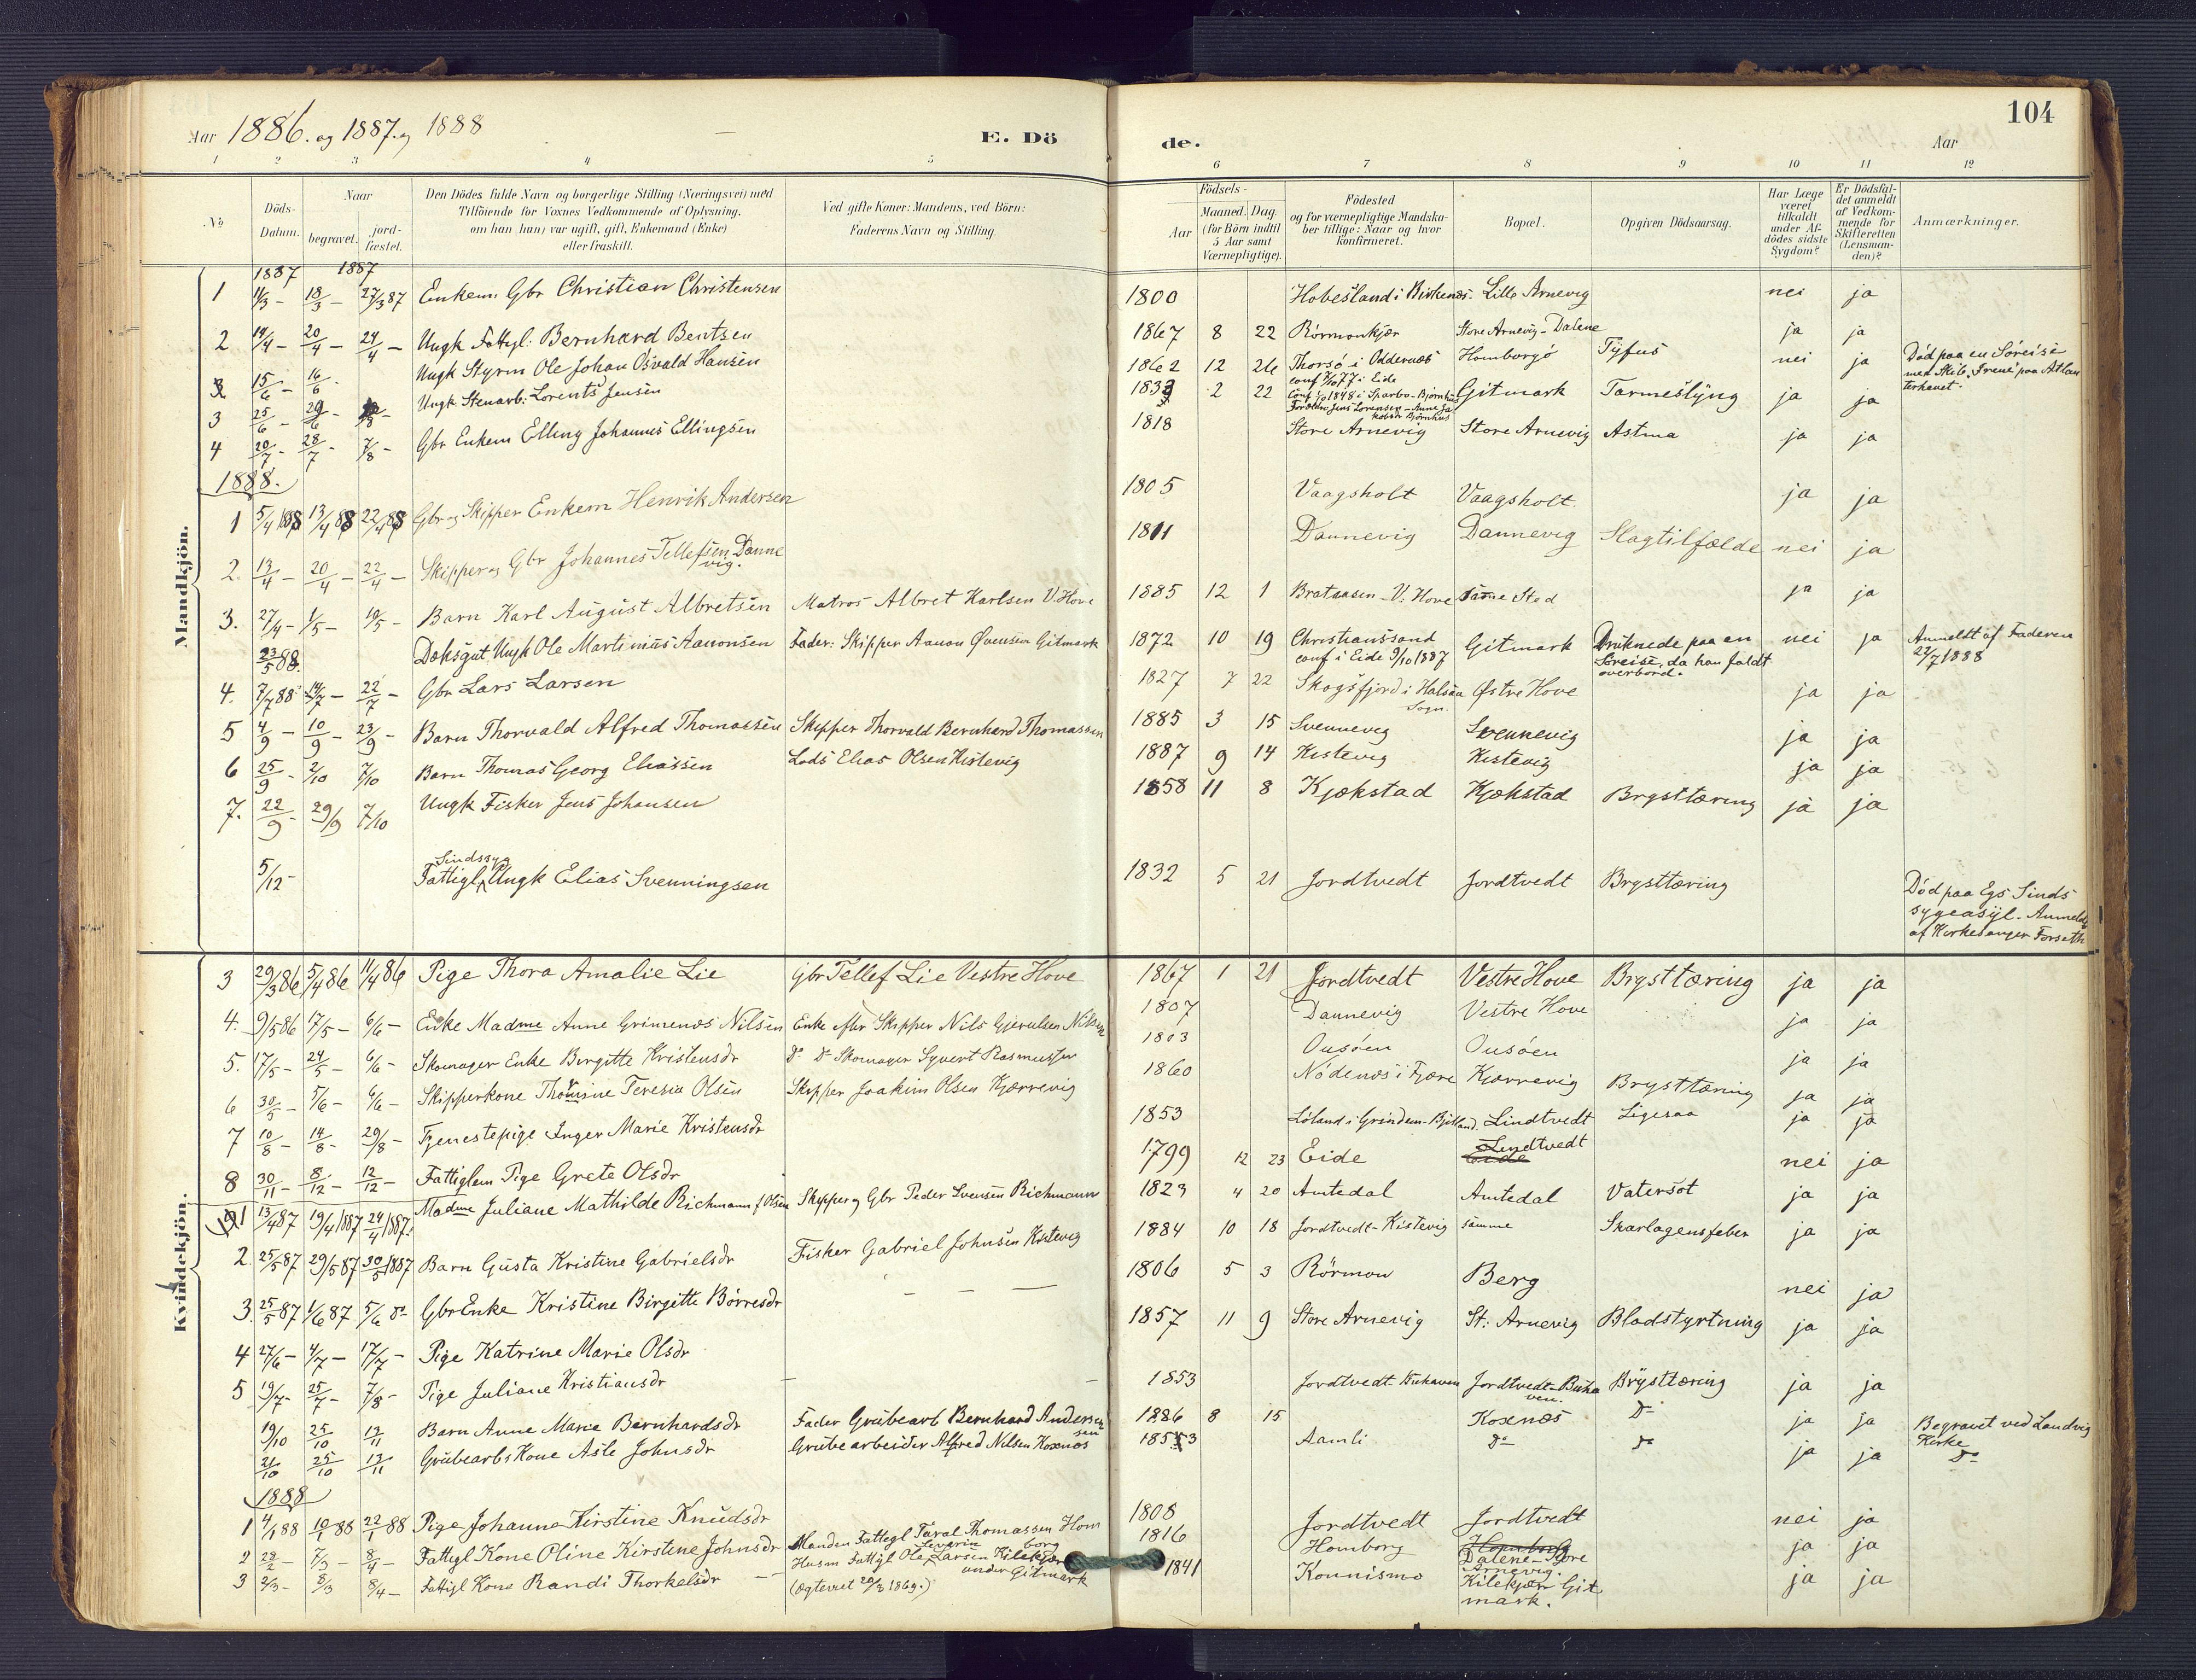 104
Aar 1886. og 1887. og 1888
E. Dö de.
Aar
1 2 3 4 5 6 7 8 9 10 11 12
No
Döds-Datum.
Naar
begravet.
jord-fæstet.
Den Dödes fulde Navn og borgerlige Stilling (Næringsvei) med
Tilföiende for Voxnes Vedkommende af Oplysning,
om han (hun) var ugift, gift, Enkemand (Enke)
eller fraskilt.
Ved gifte Koner: Mandens, ved Börn:
Faderens Navn og Stilling.
Födsels-
Aar
Maaned. Dag.
(for Börn indtil
5 Aar samt
Værnepligtige).
Födested
og for værnepligtige Mandska-
ber tillige: Naar og hvor
konfirmeret.
Bopæl.
Opgiven Dödsaarsag.
Har Læge
været
tilkaldt
under Af-
dödes sidste
Sygdom?
Er Dödsfal-
det anmeldt
af Vedkom-
mende for
Skifteretten
(Lensman-
den)?
Anmærkninger.
Mandkjön.
1887 1887
1 11/3 - 18/3 - 27/3 87 Enkem. Gbr Christian Christensen 1800 Hobesland i Birkenæs. Lille Arnevig nei ja
2 14/4 - 20/4 - 24/4 - Ungk Fattigl: Bernhard Bentsen 1867 8 22 Rörmonkjær Store Arnevig - Dalene ja ja
15/6 - 16/6 - Ungk Styrm Ole Johan Osvald Hansen 1862 12 26 Thorsö i Oddernæs conf 7/10 77 i Eide Homborgö Tyfus nei ja Död paa en Söreise
med Skib. Irene paa Atlan
terhavet.
3 25/6 - 29/6 - Ungk. Stenarb: Lorents Jensen 1833 2 22 Gitmark Tarmeslyng ja ja
4 20/7 - 28/7 - 7/8 - Gbr Enkem Elling Johannes Ellingsen 1818 Store Arnevig Store Arnevig Astma ja ja
1888.
1 5/4 188 13/4 88 22/4 88 Gbr og Skipper Enkem Henrik Andersen 1805 Vaagsholt Vaagsholt. ja ja
2. 13/4 - 20/4 - 22/4 - Skipper og Gbr Johannes Tellefsen Danne
vig. 1811 Dannevig Dannevig Slagtilfælde nei ja
3. 27/4 - 1/5 - 10/5 - Barn Karl August Albretsen Matros Albret Karlsen V. Hove 1885 12 1 Brataasen V. Hove samme Sted ja ja
23/5 88. Dæksgut Ungk Ole Martinius Aanonsen Fader: Skipper Aanon Øvensen Gitmark 1872 10 19 Christianssand
conf i Eide 9/10 1887 Gitmark Druknede paa en
Söreise, da han faldt
overbord. nei ja Anmeldt af Faderen
22/7 1888
4. 7/7 88 14/7 - 22/7 - Gbr Lars Larsen 1827 7 22 Skogsfjord i Halsaa
Sogn. Østre Hove ja ja
5 4/9 - 10/9 - 23/9 - Barn Thorvald Alfred Thomassen Skipper Thorvald Bernhard Thomassen 1885 3 15 Svennevig Svennevig ja ja
6 25/9 - 2/10 7/10 Barn Thomas Georg Eliassen Lods Elias Olsen Kistevig 1887 9 14 Kistevig Kistevig ja ja
7. 22/9 - 29/9 7/10 Ungk Fisker Jens Johansen 1858 11 8 Kjøkstad Kjøkstad Brysttæring ja ja
5/12 - Fattigl, Sindssyg Ungk Elias Svenningsen 1832 5 21 Jordtvedt Jordtvedt Brysttæring Död paa Egs Sinds
sygeasyl. Anmeldt
af Kirkesanger Forseth
Kvindekjön.
3 29/3 86 5/4 86 11/4 86 Pige Thora Amalie Lie Gbr Tellef Lie Vestre Hove 1867 1 21 Jordtvedt Vestre Hove Brysttæring ja ja
4. 9/5 86 17/5 - 6/6 - Enke Madme Anne Grimenæs Nilsen Enke efter Skipper Nils Gjerulsen Nilsen 1807 Dannevig Vestre Hove ja ja
5. 17/5 - 24/5 - 6/6 - Skomager Enke Birgitte Kristensdr Do Do Skomager Syvert Rasmussen 1803 Ousöen Ousöen ja ja
6 30/5 - 5/6 - 6/6 - Skipperkone Thomine Teresia Olsen Skipper Joakim Olsen Kjærrevig 1860 Nödenæs i Fjære Kjærrevig Brysttæring ja ja
7 10/8 - 14/8 - 29/8 - Tjenestepige Inger Marie Kristensdr 1853 Löland i Grindem - Bjelland. Lindtvedt Ligesaa ja ja
8 30/11 - 8/12 - 12/12 - Fattiglem Pige Grete Olsdr 1799 12 23 Eide Lindtvedt nei ja
1 13/4 87 19/4 1887 24/4 1887. Madme Juliane Mathilde Richmann f Olsen Skipper og Gbr Peder Svensen Richmann 1823 4 20 Amtedal Amtedal Vatersot ja ja
2. 25/5 87 29/5 87 30/5 1887 Barn Gusta Kristine Gabrielsdr Fisker Gabriel Johnsen Kistevig 1884 10 18 Jordtvedt - Kistevig samme Skarlagensfeber ja ja
3. 25/5 87 1/6 87 5/6 do Gbr Enke Kristine Birgitte Börresdr - - - 1806 5 3 Rörmon Berg nei ja
4 27/6 - 4/7 - 17/7 - Pige Katrine Marie Olsdr 1857 11 9 Store Arnevig St: Arnevig Blodstyrtning ja ja
5 19/7 - 25/7 - 7/8 - Pige Juliane Kristiansdr - - 1853 Jordtvedt - Buhaven Jordtvedt - Buha
ven. Brysttæring ja ja
19/10 25/10 13/11 Barn Anne Marie Bernhardsdr Fader Grubearb Bernhard Andersen 1886 8 15 Koxnæs Do ja ja Begravet ved Landvig
Kirke
21/10 25/10 13/11 Grubearb. Kone Asle Johnsdr Grubearbeider Alfred Nilsen Koxnæs 1853 Aamli Do Do ja ja Do
1888
1 4/1 88 10/1 88 22/1 88 Pige Johanne Kirstine Knudsdr 1808 Jordtvedt Jordtvedt nei ja
2 28/2 - 7/3 - 8/4 - Fattigl Kone Oline Kirstine Johnsdr Manden Fattigl Taral Thomassen Hom
borg 1816 Homborg Homborg
Dalene - Store
Arnevig. ja ja
3 2/3 - 8/3 8/4 - Fattigl Kone Randi Thorkelsdr - - Husm Fattigl Ole Severin Larsen Kilekjær
under Gitmark
(Ægteviet 20/3 1869.) 1841 Konnismo Kilekjær Git
mark. ja ja